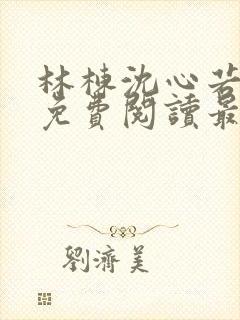 林棟沈心若
免費閱讀最
劉濟美